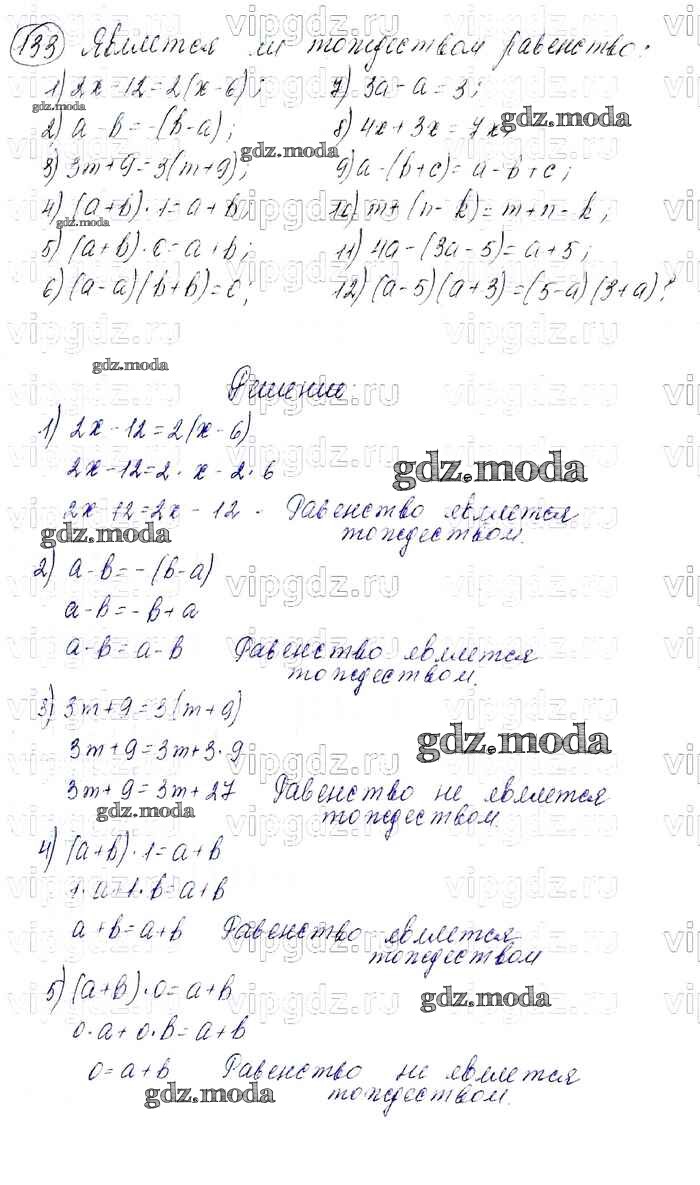 133 Является ли тождеством равенство:
1) 2x - 12 = 2(x - 6);
7) 3a - a = 3;
gdz.moda
2) a - b = -(b - a);
8) 4x + 3x = 7x;
gdz.moda
3) 3m + 9 = 3(m + 9);
9) a - (b + c) = a - b + c;
4) (a + b) · 1 = a + b;
10) m + (n - k) = m + n - k;
gdz.moda
5) (a + b) · 0 = a + b;
11) 4a - (3a - 5) = a + 5;
6) (a - a)(b + b) = 0;
12) (a - 5)(a + 3) = (5 - a)(3 + a)?
gdz.moda
Решение:
1) 2x - 12 = 2(x - 6)
2x - 12 = 2 · x - 2 · 6
gdz.moda
2x - 12 = 2x - 12 . Равенство является
тождеством.
gdz.moda
2) a - b = -(b - a)
a - b = - b + a
a - b = a - b Равенство является
тождеством.
3) 3m + 9 = 3(m + 9)
3m + 9 = 3m + 3 · 9
gdz.moda
3m + 9 = 3m + 27 Равенство не является
тождеством.
gdz.moda
4) (a + b) · 1 = a + b
1 · a + 1 · b = a + b
a + b = a + b Равенство является
тождеством
gdz.moda
5) (a + b) · 0 = a + b
gdz.moda
0 · a + 0 · b = a + b
0 = a + b Равенство не является
тождеством.
gdz.moda
vipgdz.ru